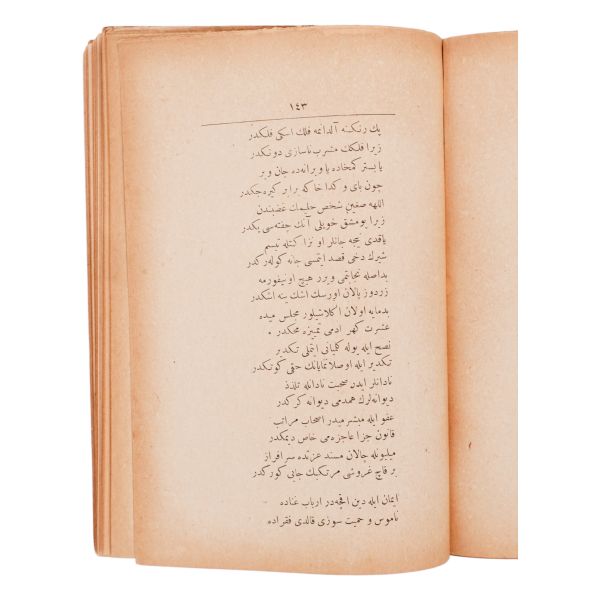 ١٤٣
پك رنكنه آلدانمه فلك اسكى فلكدر
زيرا فلكك مشرب ناسازى دونكدر
يا بستر كمخاده يا ويرانه‌ده جان وير
چون باى و كدا خاكه برابر كيره‌جكدر
اللهه صغين شخص حليمك غضبندن
زيرا يومشق خويلى آتك چفته‌سى پكدر
ياقدى نيجه جانلر او نزاكتله تبسم
شيرك دخى قصد ايتمسى جانه كوله‌ركدر
بداصله نجابتمى ويرر هيچ اونيفورمه
زردوز پالان اورسك اشك ينه اشكدر
بدمايه اولان اكلاشيلور مجلس ميده
عشرت كهر آدمى تمييزه محكدر .
نصح ايله يوله كلميانى ايتملى تكدير
تكدير ايله اوصلانمايانك حقى كوتكدر
نادانلر ايدر صحبت نادانله تلذذ
ديوانه‌لرك همدمى ديوانه كركدر
عفو ايله مبشرميدر اصحاب مراتب
قانون جزا عاجزه‌مى خاص ديمكدر
ميليونله چالان مسند عزتده سرافراز
بر قاچ غروشى مرتكبك جايى كوركدر
ايمان ايله دين اقچه‌در ارباب غناده
ناموس و حميت سوزى قالدى فقراده